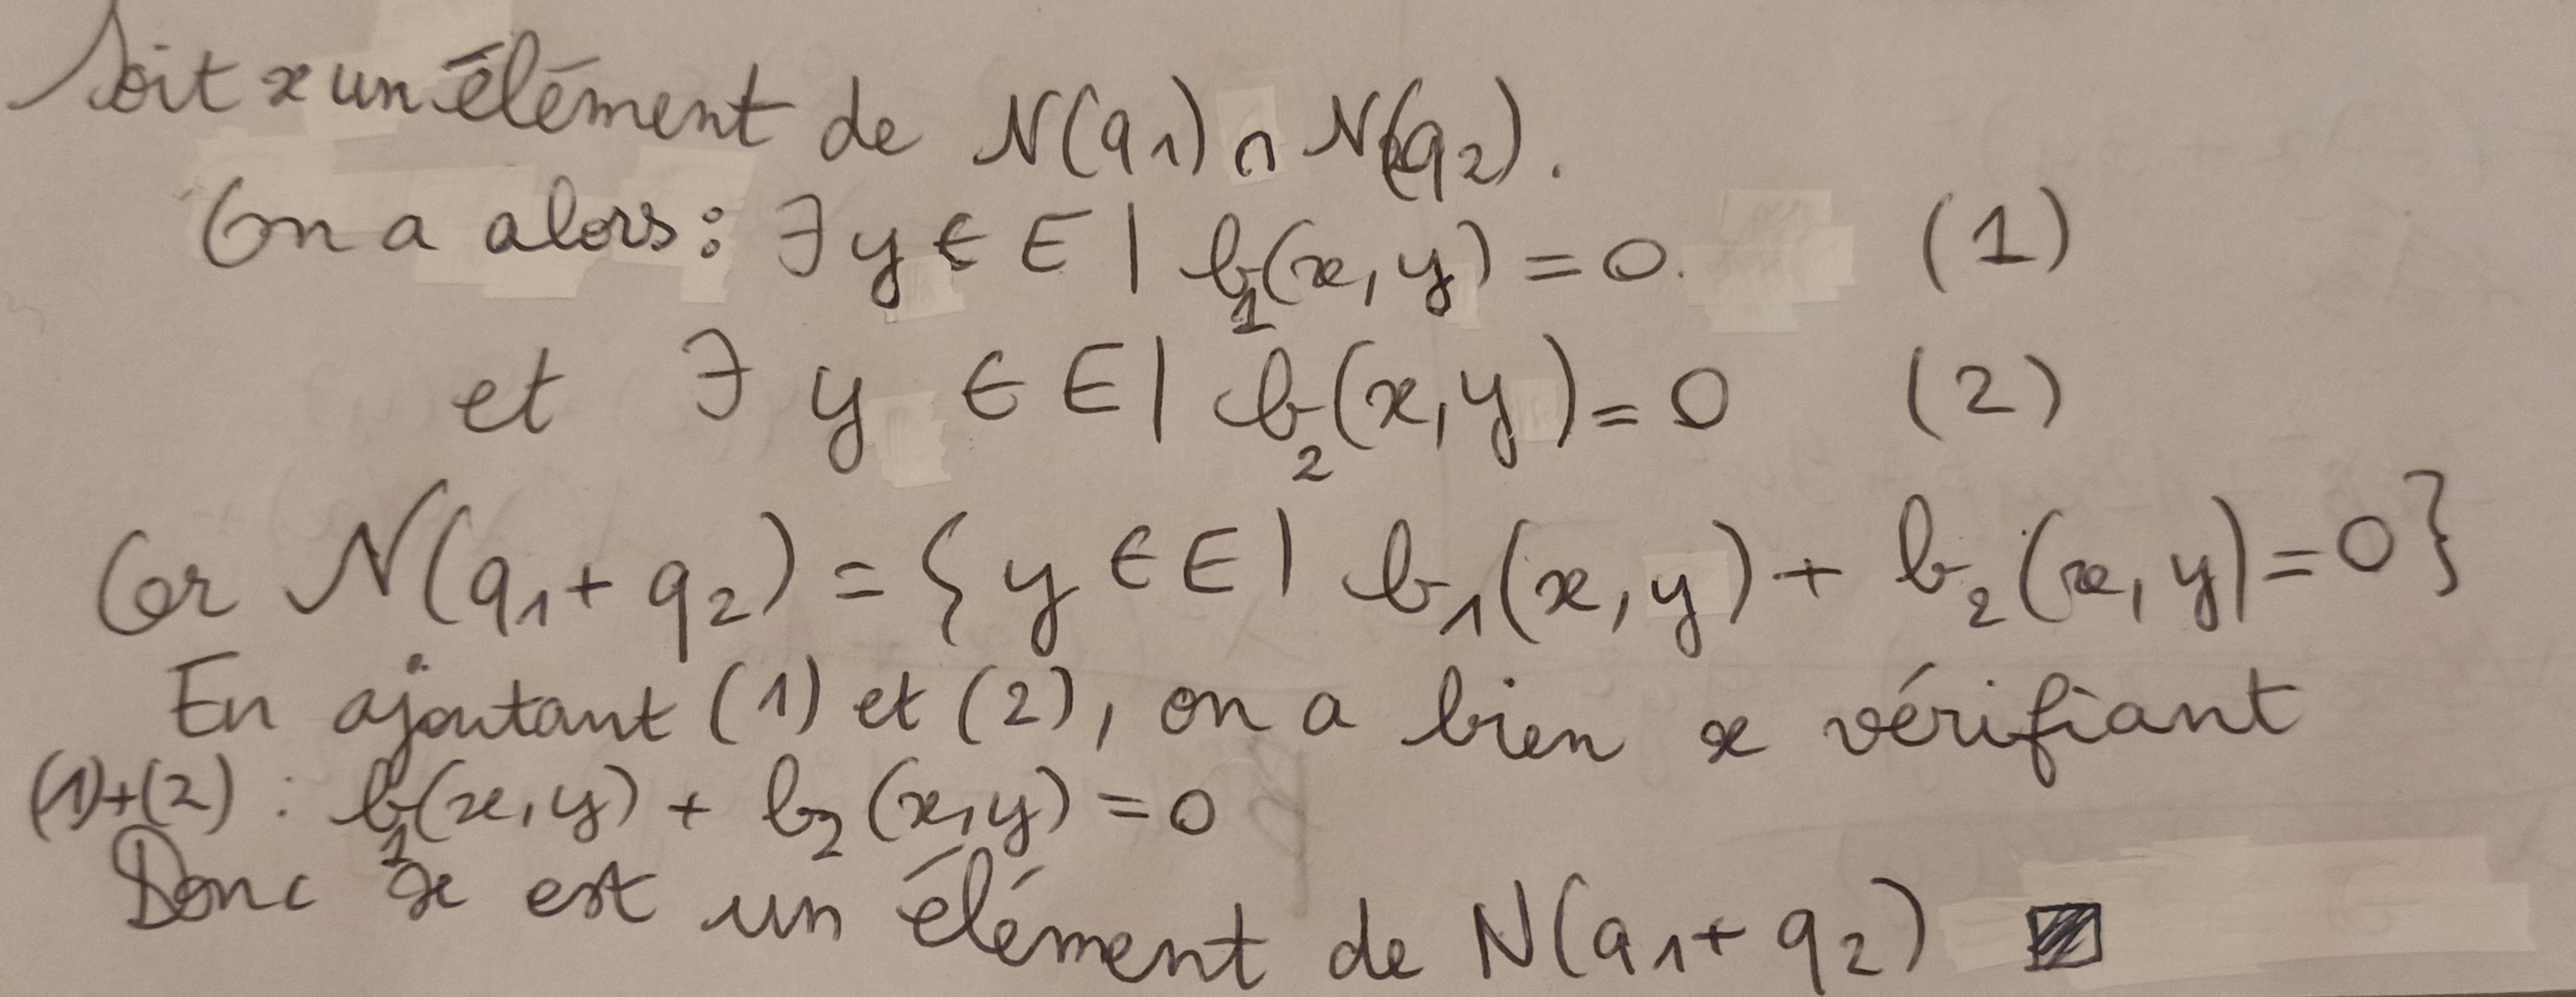 Soit x un élément de N(q₁) ∩ N(q₂).
On a alors : ∃ y ∈ E | b₁(x, y) = 0. (1)
et ∃ y ∈ E | b₂(x, y) = 0 (2)
Or N(q₁ + q₂) = { y ∈ E | b₁(x, y) + b₂(x, y) = 0 }
En ajoutant (1) et (2), on a bien x vérifiant
(1)+(2) : b₁(x, y) + b₂(x, y) = 0
Donc x est un élément de N(q₁ + q₂)